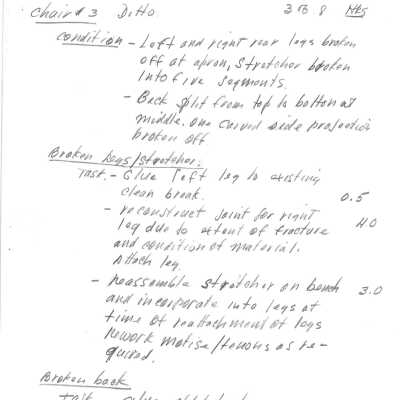 Chair #3 Ditto 3 TO 8 Hrs
Condition - Left and right rear legs broken
off at apron, stretcher broken
into five segments.
- Back split from top to bottom at
middle. One carved side projection
broken off
Broken legs/stretcher:
Task. - Glue left leg to existing
clean break. 0.5
- reconstruct joint for right
leg due to extent of fracture 4.0
and condition of material.
Attach leg.
- reassemble stretcher on bench 3.0
and incorporate into legs at
time of reattachment of legs
rework mortise/tenons as re-
quired.
Broken back